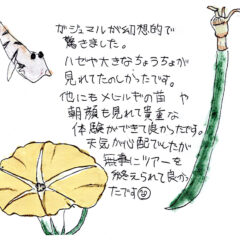 ガジュマルが幻想的で
驚きました。
ハゼや大きなちょうちょが
見れてたのしかったです。
他にもメヒルギの苗や
朝顔も見れて貴重な
体験ができて良かったです。
天気が心配でしたが
無事にツアーを
終えられて良か
ったです